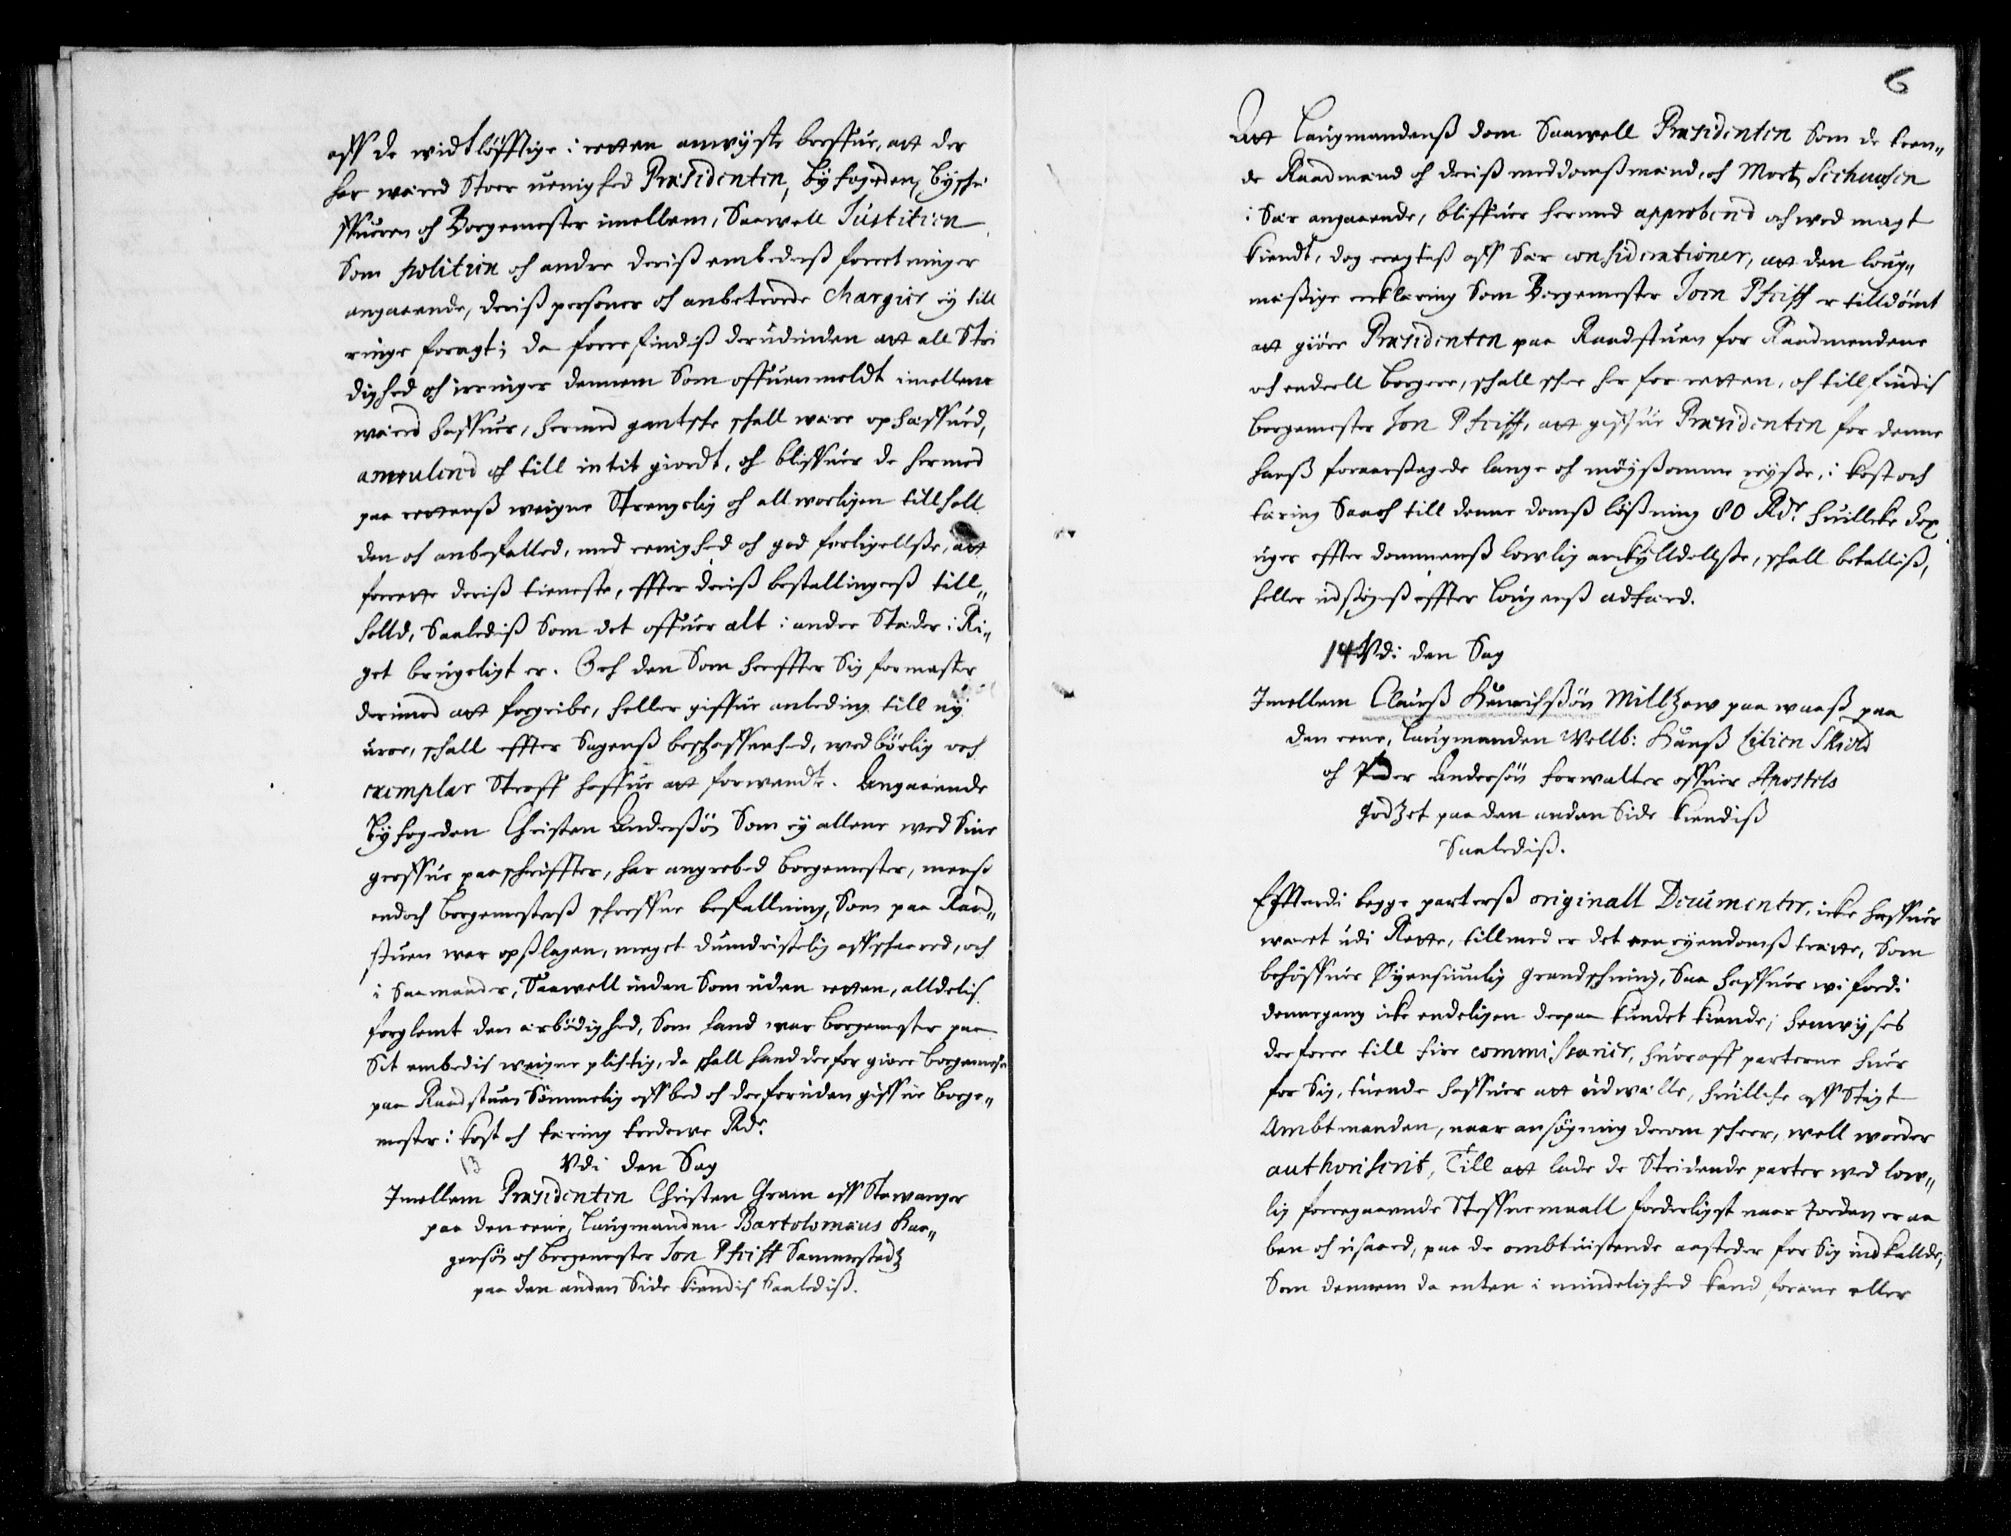 aff de widtløfftige i retten anwyste breffue, att der
har wæred Stoer uenighed Præsidenten, byfogeden, bysschri
ffueren och Borgemester imellem, Saawell Justitien
Som politien och andre deriß embederß forretninger
angaaende, deriß personer och anbetroede Chargier ey till
ringe foragt; da forrefindiß derudinden att all Stri
dighed och irringer dennem Som offuenmeldt imellem
wæred haffuer, hermed gantske schall wære ophæffued,
annulered och till intit giordt, och bliffuer de hermed
paa rettenß weigne Strengelig och allworligen tillholl
den och anbefalled, med eenighed och god forligellße, att
forrette deriß tieneste, effter deriß bestallingerß till„
holld, Saalediß Som det offuer alt i andre Stæder i Ri„
get brugeligt er. Och den Som hereffter Sig formaster
derimod att forgribe, heller giffue anleding till ny
uroe, schall effter Sagenß beschaffenhed, wedbørlig och
exemplar Straff haffue att forwendte. Angaaende
Byfogeden Christen Anderßøn Som ey allene med Sine
groffue paaschriffter, har angrebed borgemester, mens
endoch borgemesterß schreffne befallning, Som paa Raad„
stuen war opslagen, meget dumdristelig affschaared, och
i Saa maader, Saawell inden Som uden retten, alldelis
forglemt den ærbødighed, Som hand war borgemester paa
Sit embedis weigne plichtig, da schall hand derfor giøre borgemester
paa Raadstuen Sømmelig affbed och derforuden giffue borge„
mester i kost och tæring tredewe Rdr.
13 Vdi den Sag
Imellem Præsidenten Christen Gram aff Stawanger
paa den eene, Laugmanden Bartolomæus Haa„
gensøn och borgemester Jon Pheiff Sammestedtz
paa den anden Side kiendis saalediß.
6
Att Laugmandenß dom Saawell Præsidenten Som de tren„
de Raadmænd och deriß meddomßmænd, och Morten Seehuusen
i Sær angaaende, bliffuer hermed approbered och wed magt
kiendt, dog eragteß aff Sær considerationer, att den loug„
mæßige erklæring Som Borgemester Joen Pheiff er tilldømt
att giøre Præsidenten paa Raadstuen for Raadmendene
och endeell borgere, schall schee her for retten, och tillfindis
borgemester Jon Pheiff, att giffue Præsidenten for denne
hanß foraarßagede lange och møyßomme reyße, i kost och
tæring Saa och till denne domß lößning 80 Rdr. huilleke Sex
uger effter dommenß lowlig ankyndellße, schall betalliß,
heller udsøgeß effter Lougenß adfærd.
14 Vdi den Sag
Imellem Clauß Henrichßøn Milltzow paa waaß paa
den eene, Laugmanden Wellb: Hanß Lilien Skiold
och Peder Andersøn forwalter offuer Apostels
godtzet paa den anden Side kiendiß
Saalediß.
Efftterdi begge parterß originall Documenter, icke haffuer
wæret udi Rette, tillmed er det een eyendomß trætte, Som
behøffuer Øyensiunlig grandschning, Saa haffuer wi fordi
dennegang icke endeligen derpaa kundet kiende; henwyses
derforre till fire commissarier, huoraff parterne huer
for Sig, tuende haffuer att udwælle, huillcke aff Stigt
Ambtmanden, naar ansøgning derom scheer, well worder
authoriserit, Till att lade de Stridende parter wed low„
lig forregaaende Steffnemaall forderligst naar Jorden er aa
ben och ufraaed, paa de ombtuistende aasteder for Sig indkallde,
Som dennem da enten i mindelighed kand forene eller